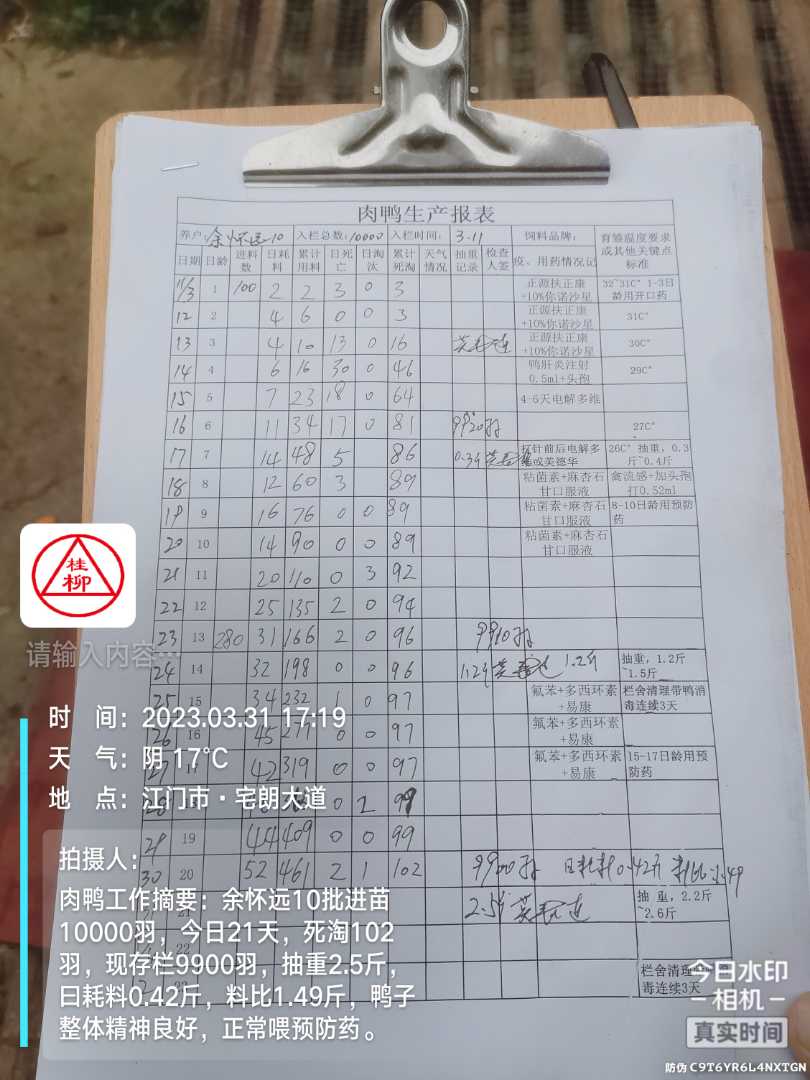 肉鸭生产报表
养户: 余怀远10 入栏总数: 10000 入栏时间: 3-11 饲料品牌: 育雏温度要求或其他关键点标准
日期 日龄 进料数 日耗料 累计用料 日死亡 日淘汰 累计死淘 天气情况 抽重记录 检查人签 疫、用药情况记
11/3 1 100 2 2 3 0 3 正源扶正康+10%你诺沙星 32~31C° 1-3日龄用开口药
12 2 4 6 0 0 3 正源扶正康+10%你诺沙星 31C°
13 3 4 10 13 0 16 正源扶正康+10%你诺沙星 30C°
14 4 6 16 30 0 46 鸭肝炎注射0.5ml+头孢 29C°
15 5 7 23 18 0 64 4-6天电解多维
16 6 11 34 17 0 81 9920羽 27C°
17 7 14 48 5 86 0.3斤 打针前后电解多维或美德华 26C° 抽重,0.3斤~0.4斤
18 8 12 60 3 89 粘菌素+麻杏石甘口服液 禽流感+加头孢打0.52ml
19 9 16 76 0 0 89 粘菌素+麻杏石甘口服液 8-10日龄用预防药
20 10 14 90 0 0 89 粘菌素+麻杏石甘口服液
21 11 20 110 0 3 92
22 12 25 135 2 0 94
23 13 280 31 166 2 0 96 9910羽
24 14 32 198 0 0 96 1.2斤 1.2斤 抽重,1.2斤~1.5斤
25 15 34 232 1 0 97 氟苯+多西环素+易康 栏舍清理带鸭消毒连续3天
26 16 45 277 0 97 氟苯+多西环素+易康
27 17 42 319 0 0 97 氟苯+多西环素+易康 15-17日龄用预防药
28 18 0 2 99
29 19 44 409 0 0 99
30 20 52 461 2 1 102 9900羽 日耗料0.42斤 料比1.49
21 2.5斤 抽重,2.2斤~2.6斤
22
23 栏舍清理 毒连续3天
桂柳
请输入内容…
时 间：2023.03.31 17:19
天 气：阴 17℃
地 点：江门市·宅朗大道
拍摄人：
肉鸭工作摘要：余怀远10批进苗
10000羽，今日21天，死淘102
羽，现存栏9900羽，抽重2.5斤，
日耗料0.42斤，料比1.49斤，鸭子
整体精神良好，正常喂预防药。
今日水印
相机
真实时间
防伪 C9T6YR6L4NXTGN